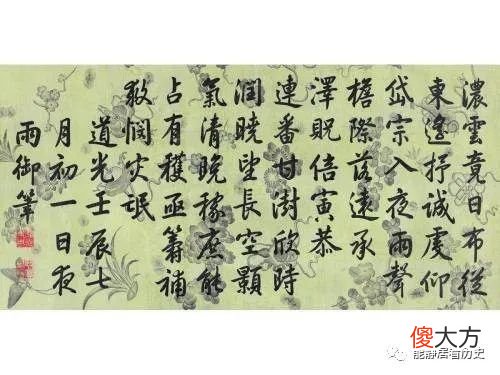 濃雲竟日布從
東遙抒誠虔仰
岱宗入夜雨聲
檐際落遠承
澤貺倍寅恭
連番甘澍欣時
潤曉望長空顥
氣清晚稼庶能
占有穫亟籌補
救憫灾氓
道光壬辰七
月初一日夜
雨御筆
傻大方
能静居看历史